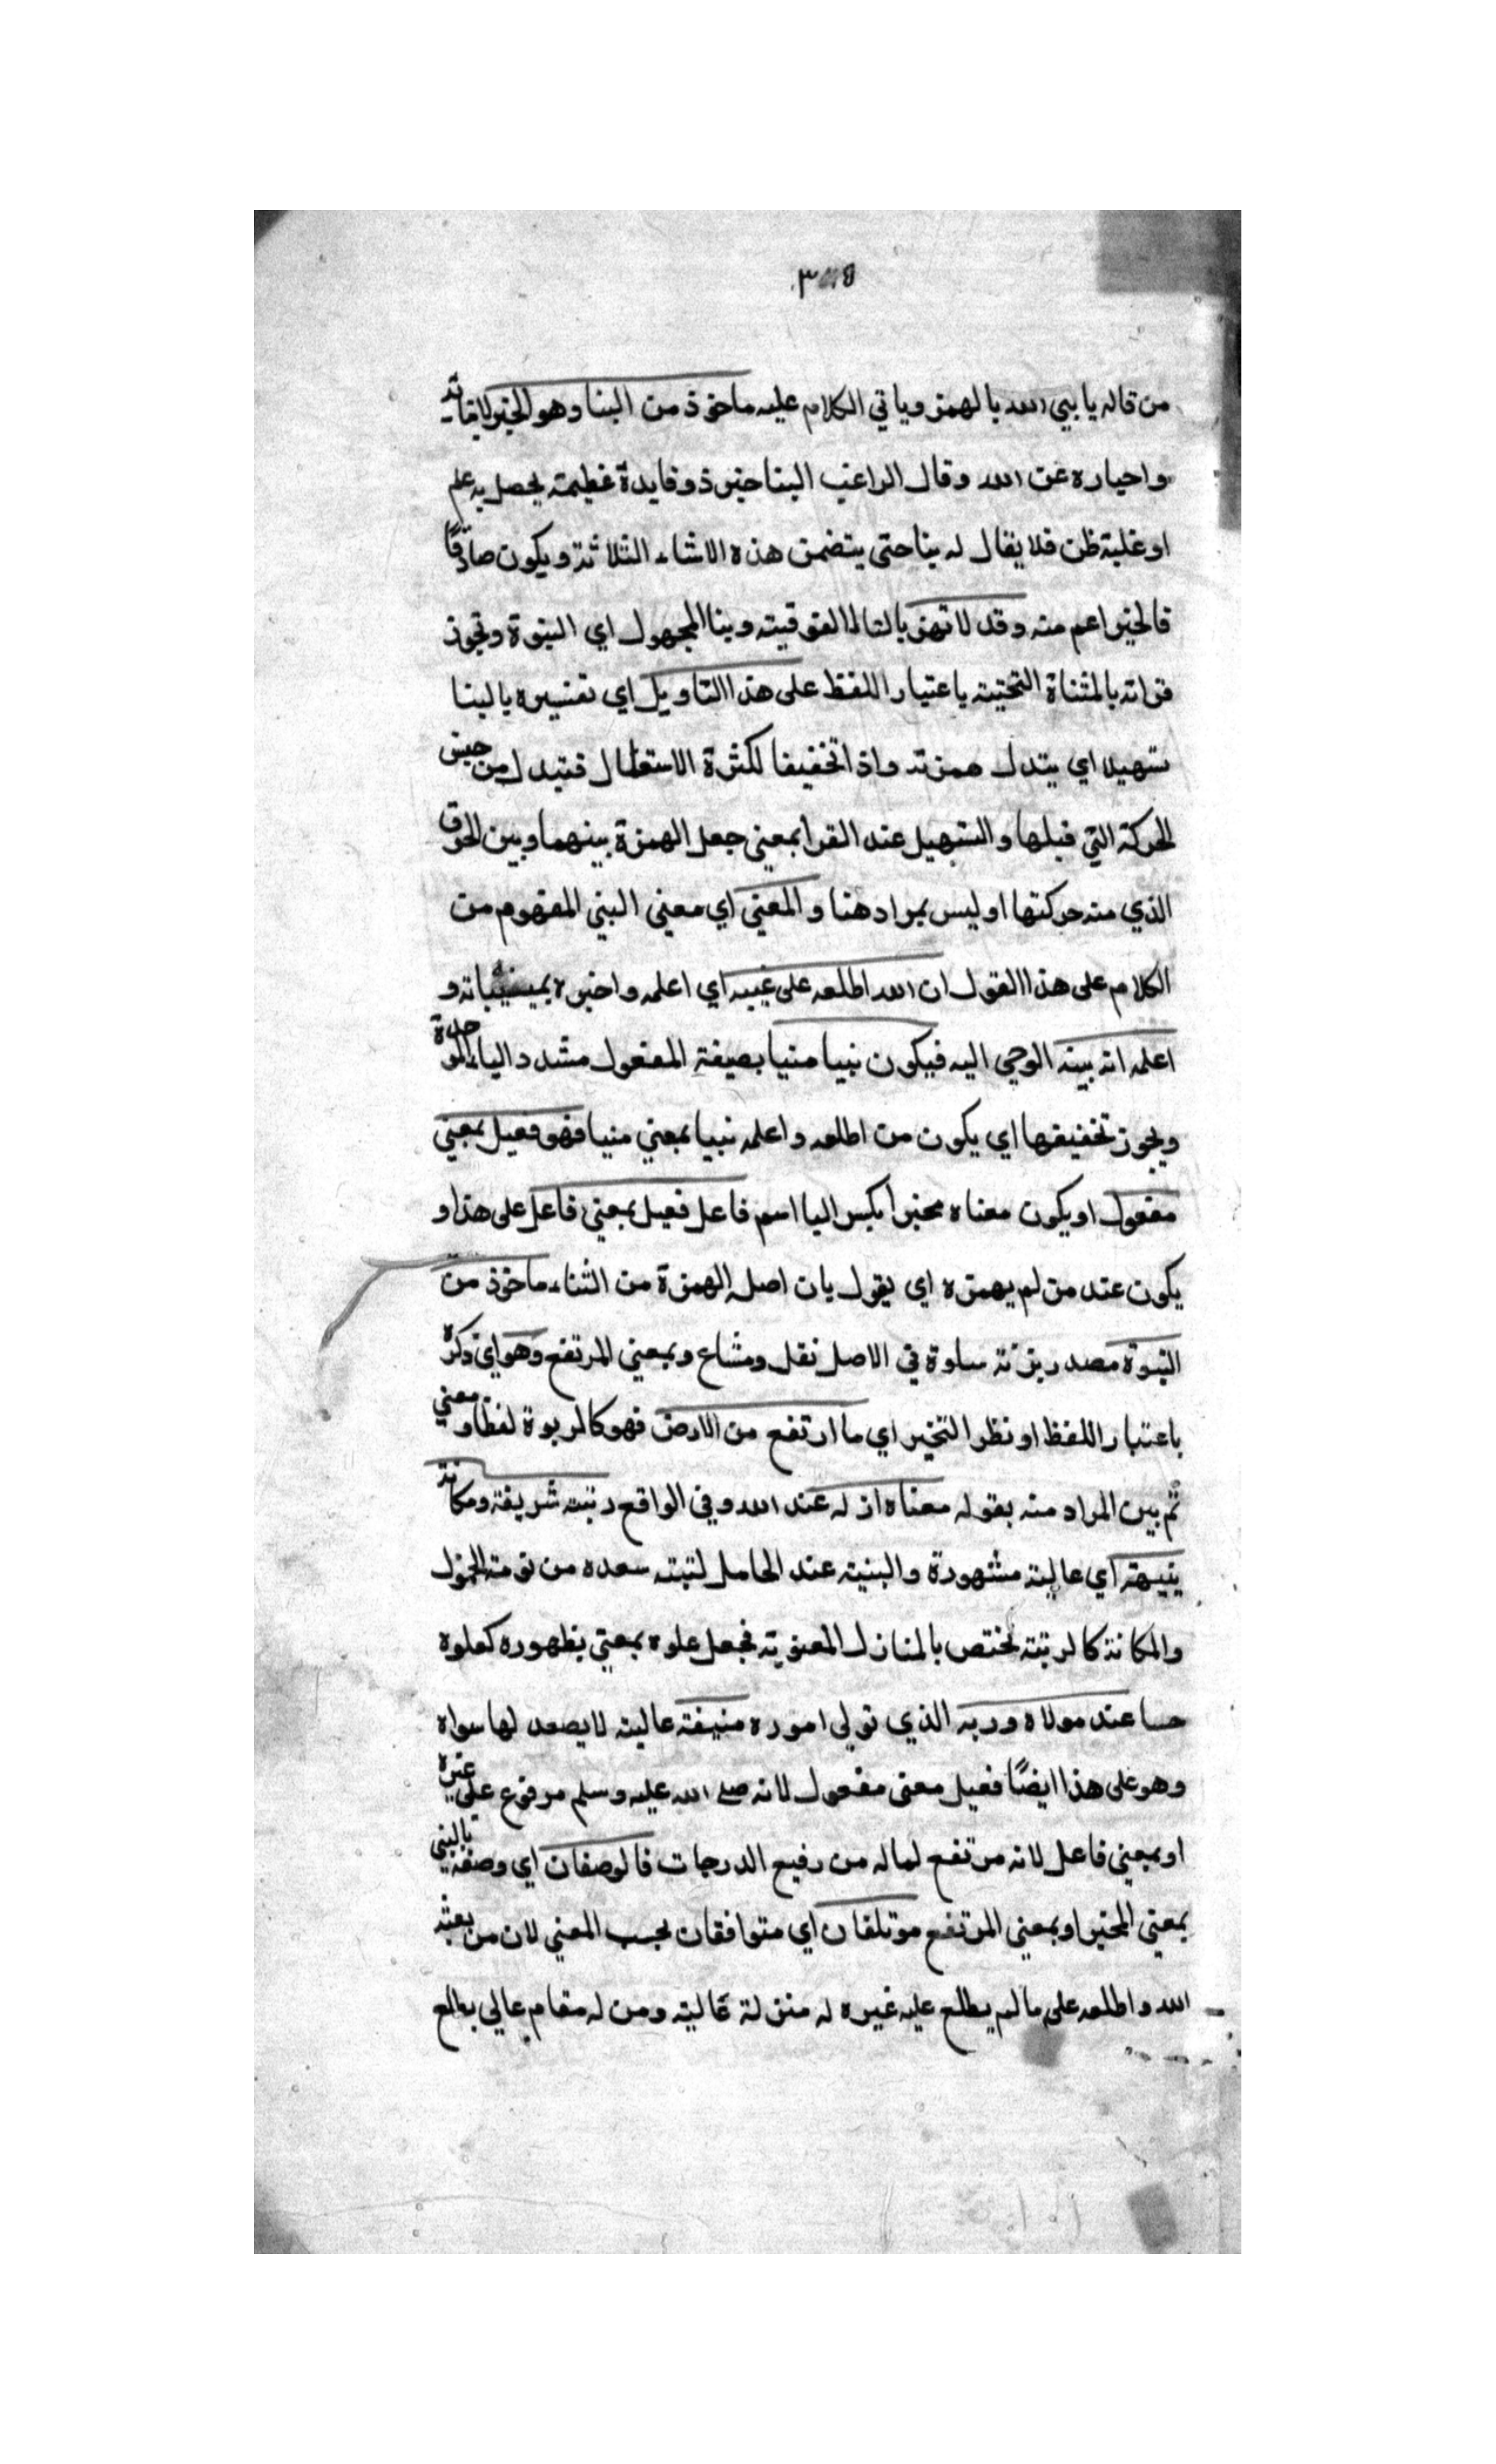 من قاله يا نبي الله بالهمز وياتي الكلام عليه ماخوذ من النبا وهو الخبر لانبائه
واخباره عن الله وقال الراغب النبا خبر ذو فايدة عظيمة يحصل به علم
او غلبة ظن فلا يقال له نبا حتى يتضمن هذه الاشياء الثلاثة ويكون صادقًا
فالخبر اعم منه وقد لا تهمز بالتا الفوقية وبنا المجهول اي النبوة وتجوز
قراته بالمثناة التحتية باعتبار اللفظ على هذا التاويل اي تفسيره بالنبا
تسهيلا اي يبدل همزته واذا تخفيفا لكثرة الاستعمال فتبدل من جنس
الحركة التي قبلها والتسهيل عند القرا بمعني جعل الهمزة بينهما وبين الحرف
الذي منه حركتها او ليس بمراد هنا والمعني اي معني النبي المفهوم من
الكلام على هذا القول ان الله اطلعه على غيبه اي اعلمه واخبره بمغيباته و
اعلمه انه نبيه الوحي اليه فيكون نبيا منبا بصيغة المفعول مشدد الباء الموحدة
ويجوز تخفيفها اي يكون من اطلعه واعلمه نبيا بمعني منبا فهو فعيل بمعني
مفعول او يكون معناه مخبرا بكسر البا اسم فاعل فعيل بمعني فاعل على هذا و
يكون عند من لم يهمزه اي يقول بان اصله الهمزة من الثناء ماخوذ من
النبوة مصدر بزنة سلوة في الاصل نقل وشاع وبمعني المرتفع وهو اي ذكره
باعتبار اللفظ او نظر التخير اي ما ارتفع من الارض فهو كالربوة لفظا ومعني
ثم بين المراد منه بقوله معناه ان له عند الله وفي الواقع رتبة شريفة ومكانة
نبيهة اي عالية مشهورة والبنية عند الحامل لتبته سعده من نومة الخمول
والمكانة كالرتبة تختص بالمنازل المعنوية فجعل علوه بمعني بظهوره كعلوه
حسا عند مولاه وربه الذي تولى اموره منيفة عالية لا يصعد لها سواه
وهو على هذا ايضًا فعيل معنى مفعول لانه صلى الله عليه وسلم مرفوع على غيره
او بمعني فاعل لانه مرتفع لماله من رفيع الدرجات فالوصفان اي وصفه بالنبي
بمعني المخبر او بمعني المرتفع موتلفان اي متوافقان بحسب المعني لان من بعثه
الله واطلعه على ما لم يطلع عليه غيره له منزلة عالية ومن له مقام عالي يطلع